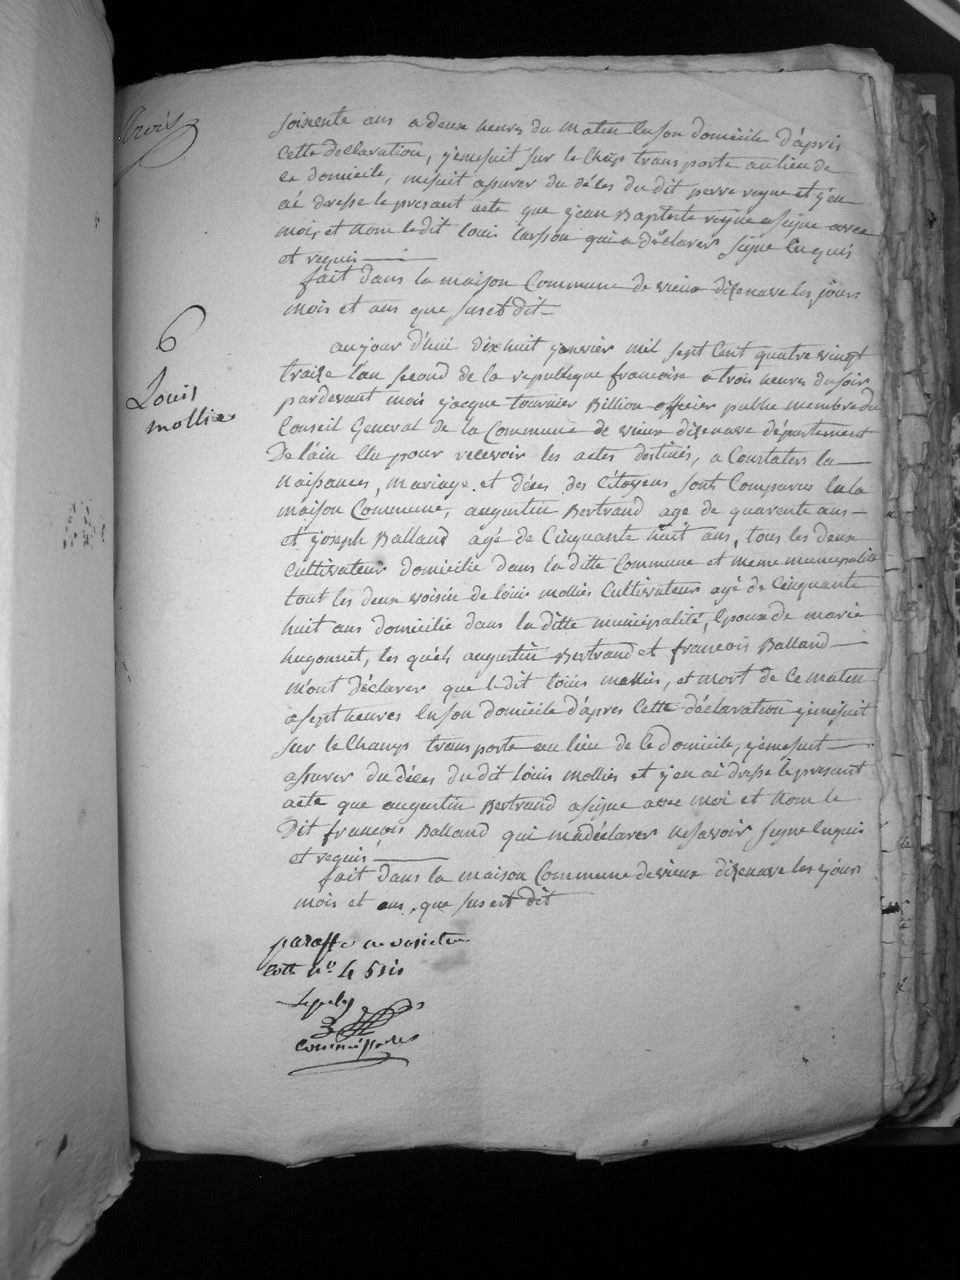 trois
soixente ans a deux heures du matin en son domicile d'apris
Cette declaration, j'emesuit sur le Chap transporte au lieu de
ce domicile, mesuit assurer du déces du dit perre reyne et j'en
ai dresse le presant acte que jean Baptiste reyne a signe avec
mois et nom le dit louis carsson qui a déclarer signe enquis
et requis
fait dans la maison Commune de vieux disenave les jours
mois et ans que sus et dit
6
Louis
mollie
aujour d'hui dixhuit genvier mil sept Cent quatre vingt
traize l'an second de la republique francoise a trois heures du soir
pardevant mois jacque tournier Billion officier public membre du
Conseil General de la Commune de vieux disenave département
De l'ain Elu pour recevoir les actes destinés, a Constaters la
naissances, mariage et déces des Citoyens sont Comparus en la
maison Commune, augustin Bertrand age de quarente ans
et joseph Balland agé de Cinquante huit ans, tous les deux
Cultivateur domicilie dans la ditte Commune et meme municipalité
tout les deux voisin de loüis mollies Cultivateur agé de Cinquante
huit ans domicilié dans la ditte municipalité, Epoux de marie
hugonnet, les quels augustin Bertrand et francois Balland
m'ont déclarer que le dit loüis mollies, et mort de ce maten
a sept heures en son domicile d'apres Cette déclaration j'emesuit
sur le Champ transporte au lieu de ce domicile, j'emesuit
assurer du déces du dit loüis mollies et j'en ai dresse le presant
acte que augustin Bertrand a signe avec moi et nom le
Dit francois Balland qui ma déclarer ne savoir signe enquis
et requis
fait dans la maison Commune de vieux disenave les jours
mois et ans, que sus est dit
paraffé ne varietur
cotte n.o 4
commissaire